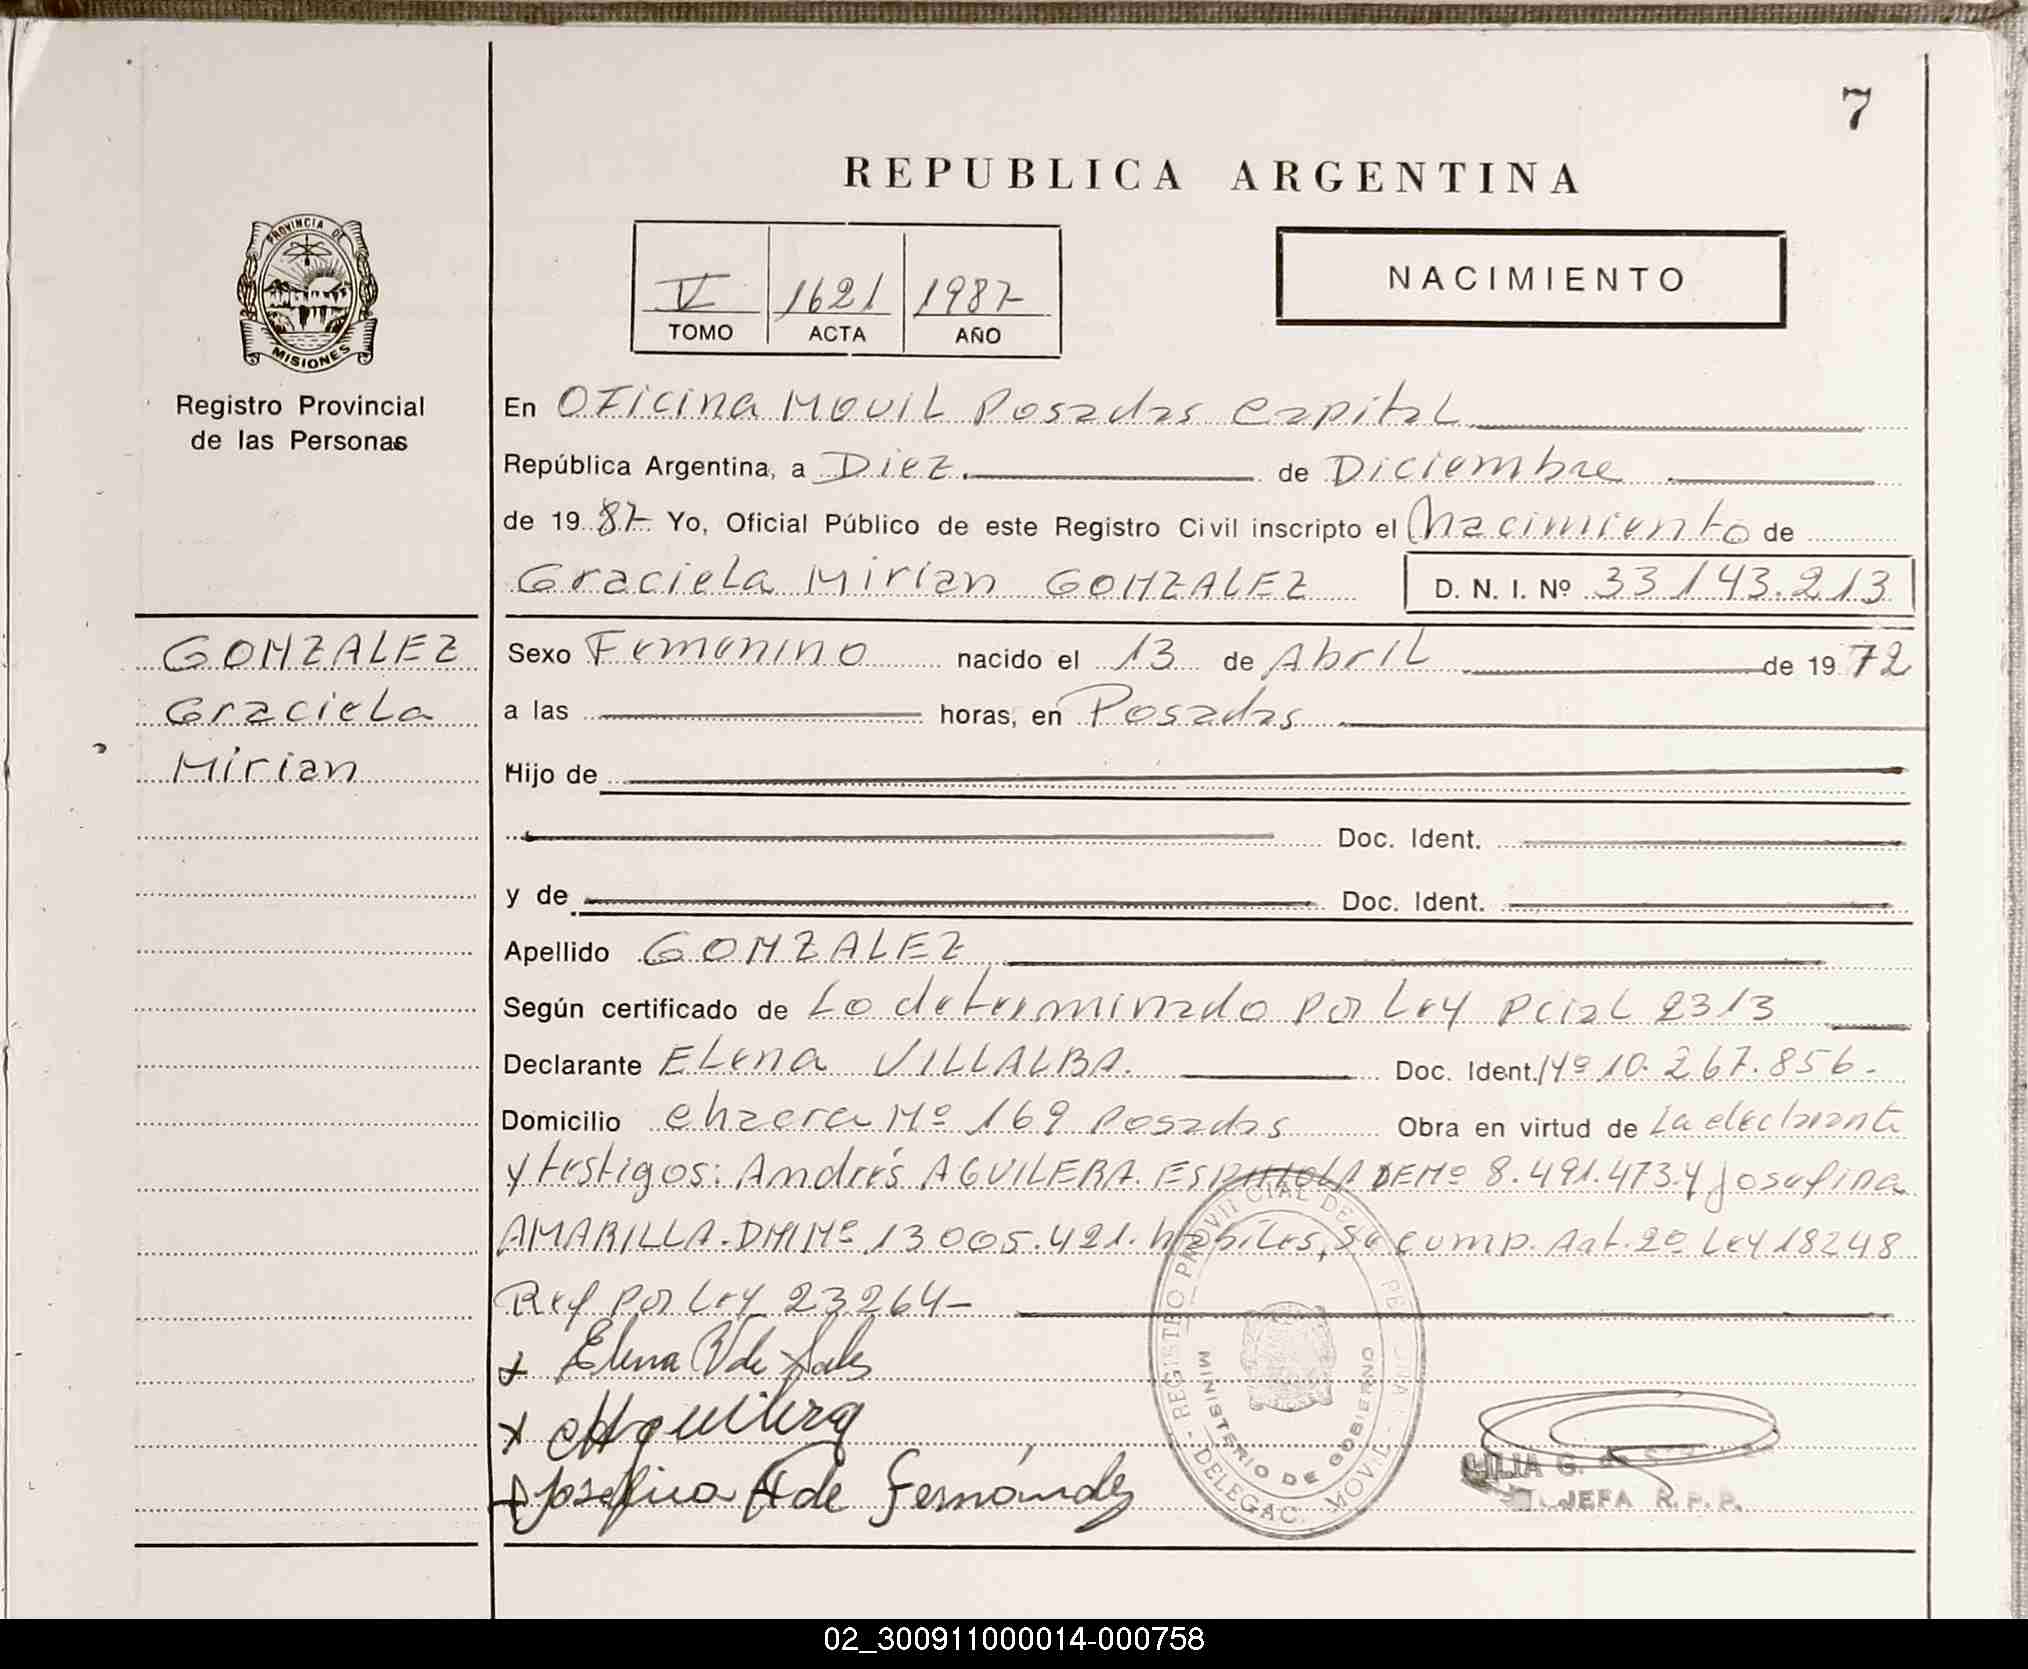 7
REPUBLICA ARGENTINA
PROVINCIA DE
MISIONES
Registro Provincial
de las Personas
V 1621 1987
TOMO ACTA AÑO
NACIMIENTO
En Oficina Movil Posadas Capital
República Argentina, a Diez de Diciembre
de 1987 Yo, Oficial Público de este Registro Civil inscripto el Nacimiento de
Graciela Mirian GONZALEZ D. N. I. Nº 33143.213
GONZALEZ
Graciela
Mirian
Sexo Femenino nacido el 13 de Abril de 1972
a las horas, en Posadas
Hijo de
Doc. Ident.
y de Doc. Ident.
Apellido GONZALEZ
Según certificado de Lo determinado por Ley Pcial 2313
Declarante Elena VILLALBA. Doc. Ident. Nº 10.267.856-
Domicilio Chacra Nº 169 Posadas Obra en virtud de La declarante
y testigos: Andrés AGUILERA ESPINOLA DENº 8.491.473 y Josefina
AMARILLA. DNI Nº 13005.421. hábiles, Se cump. Art. 2º Ley 18248
Ref por Ley 23264-
x Elena V de
x Aguilera
x Josefina A de Fernández
REGISTRO PROVINCIAL DE
MINISTERIO DE GOBIERNO
DELEGAC. MOVIL
LILIA G. de
JEFA R. P. P.
02_300911000014-000758